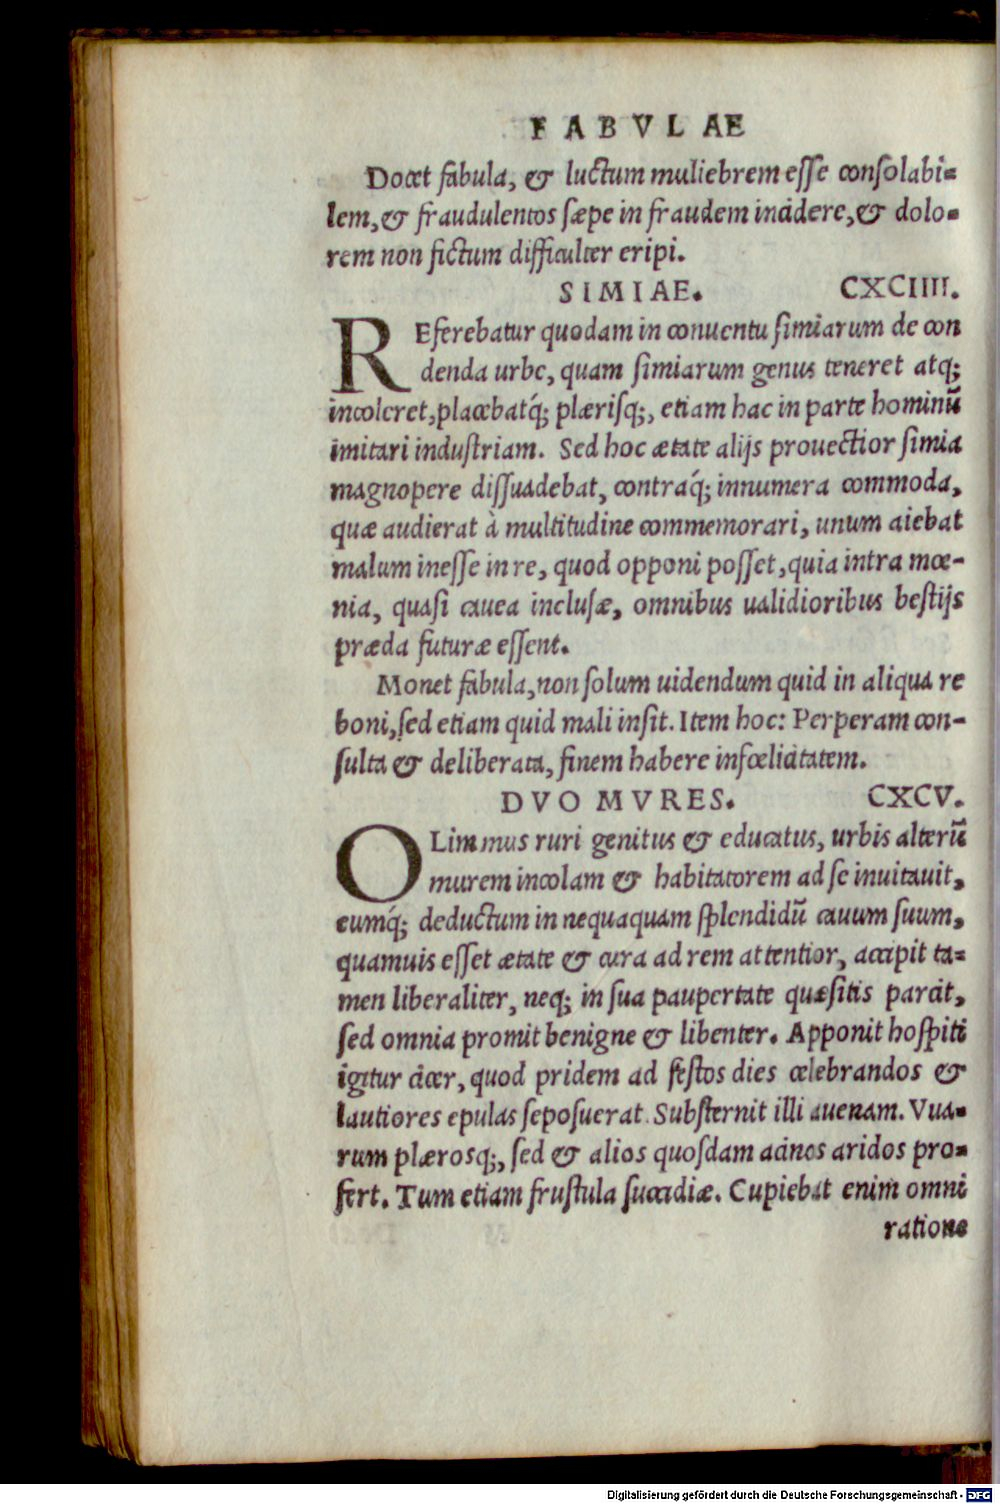 FABVLAE
Docet fabula, & luctum muliebrem esse consolabi-
lem, & fraudulentos sæpe in fraudem incidere, & dolo-
rem non fictum difficulter eripi.
SIMIAE. CXCIIII.
REferebatur quodam in conuentu simiarum de con
denda urbe, quam simiarum genus teneret atq;
incoleret, placebatq́; plærisq;, etiam hac in parte hominũ
imitari industriam. Sed hoc ætate alijs prouectior simia
magnopere dissuadebat, contraq́; innumera commoda,
quæ audierat à multitudine commemorari, unum aiebat
malum inesse in re, quod opponi posset, quia intra mœ-
nia, quasi cauea inclusæ, omnibus ualidioribus bestijs
præda futuræ essent.
Monet fabula, non solum uidendum quid in aliqua re
boni, sed etiam quid mali insit. Item hoc: Perperam con-
sulta & deliberata, finem habere infœlicitatem.
DVO MVRES. CXCV.
OLim mus ruri genitus & educatus, urbis alterũ
murem incolam & habitatorem ad se inuitauit,
eumq́; deductum in nequaquam splendidũ cauum suum,
quamuis esset ætate & cura ad rem attentior, accipit ta-
men liberaliter, neq; in sua paupertate quæsitis parcit,
sed omnia promit benigne & libenter. Apponit hospiti
igitur cicer, quod pridem ad festos dies celebrandos &
lautiores epulas seposuerat. Substernit illi auenam. Vua-
rum plærosq;, sed & alios quosdam acinos aridos pro-
fert. Tum etiam frustula succidiæ. Cupiebat enim omni
ratione
Digitalisierung gefördert durch die Deutsche Forschungsgemeinschaft - DFG